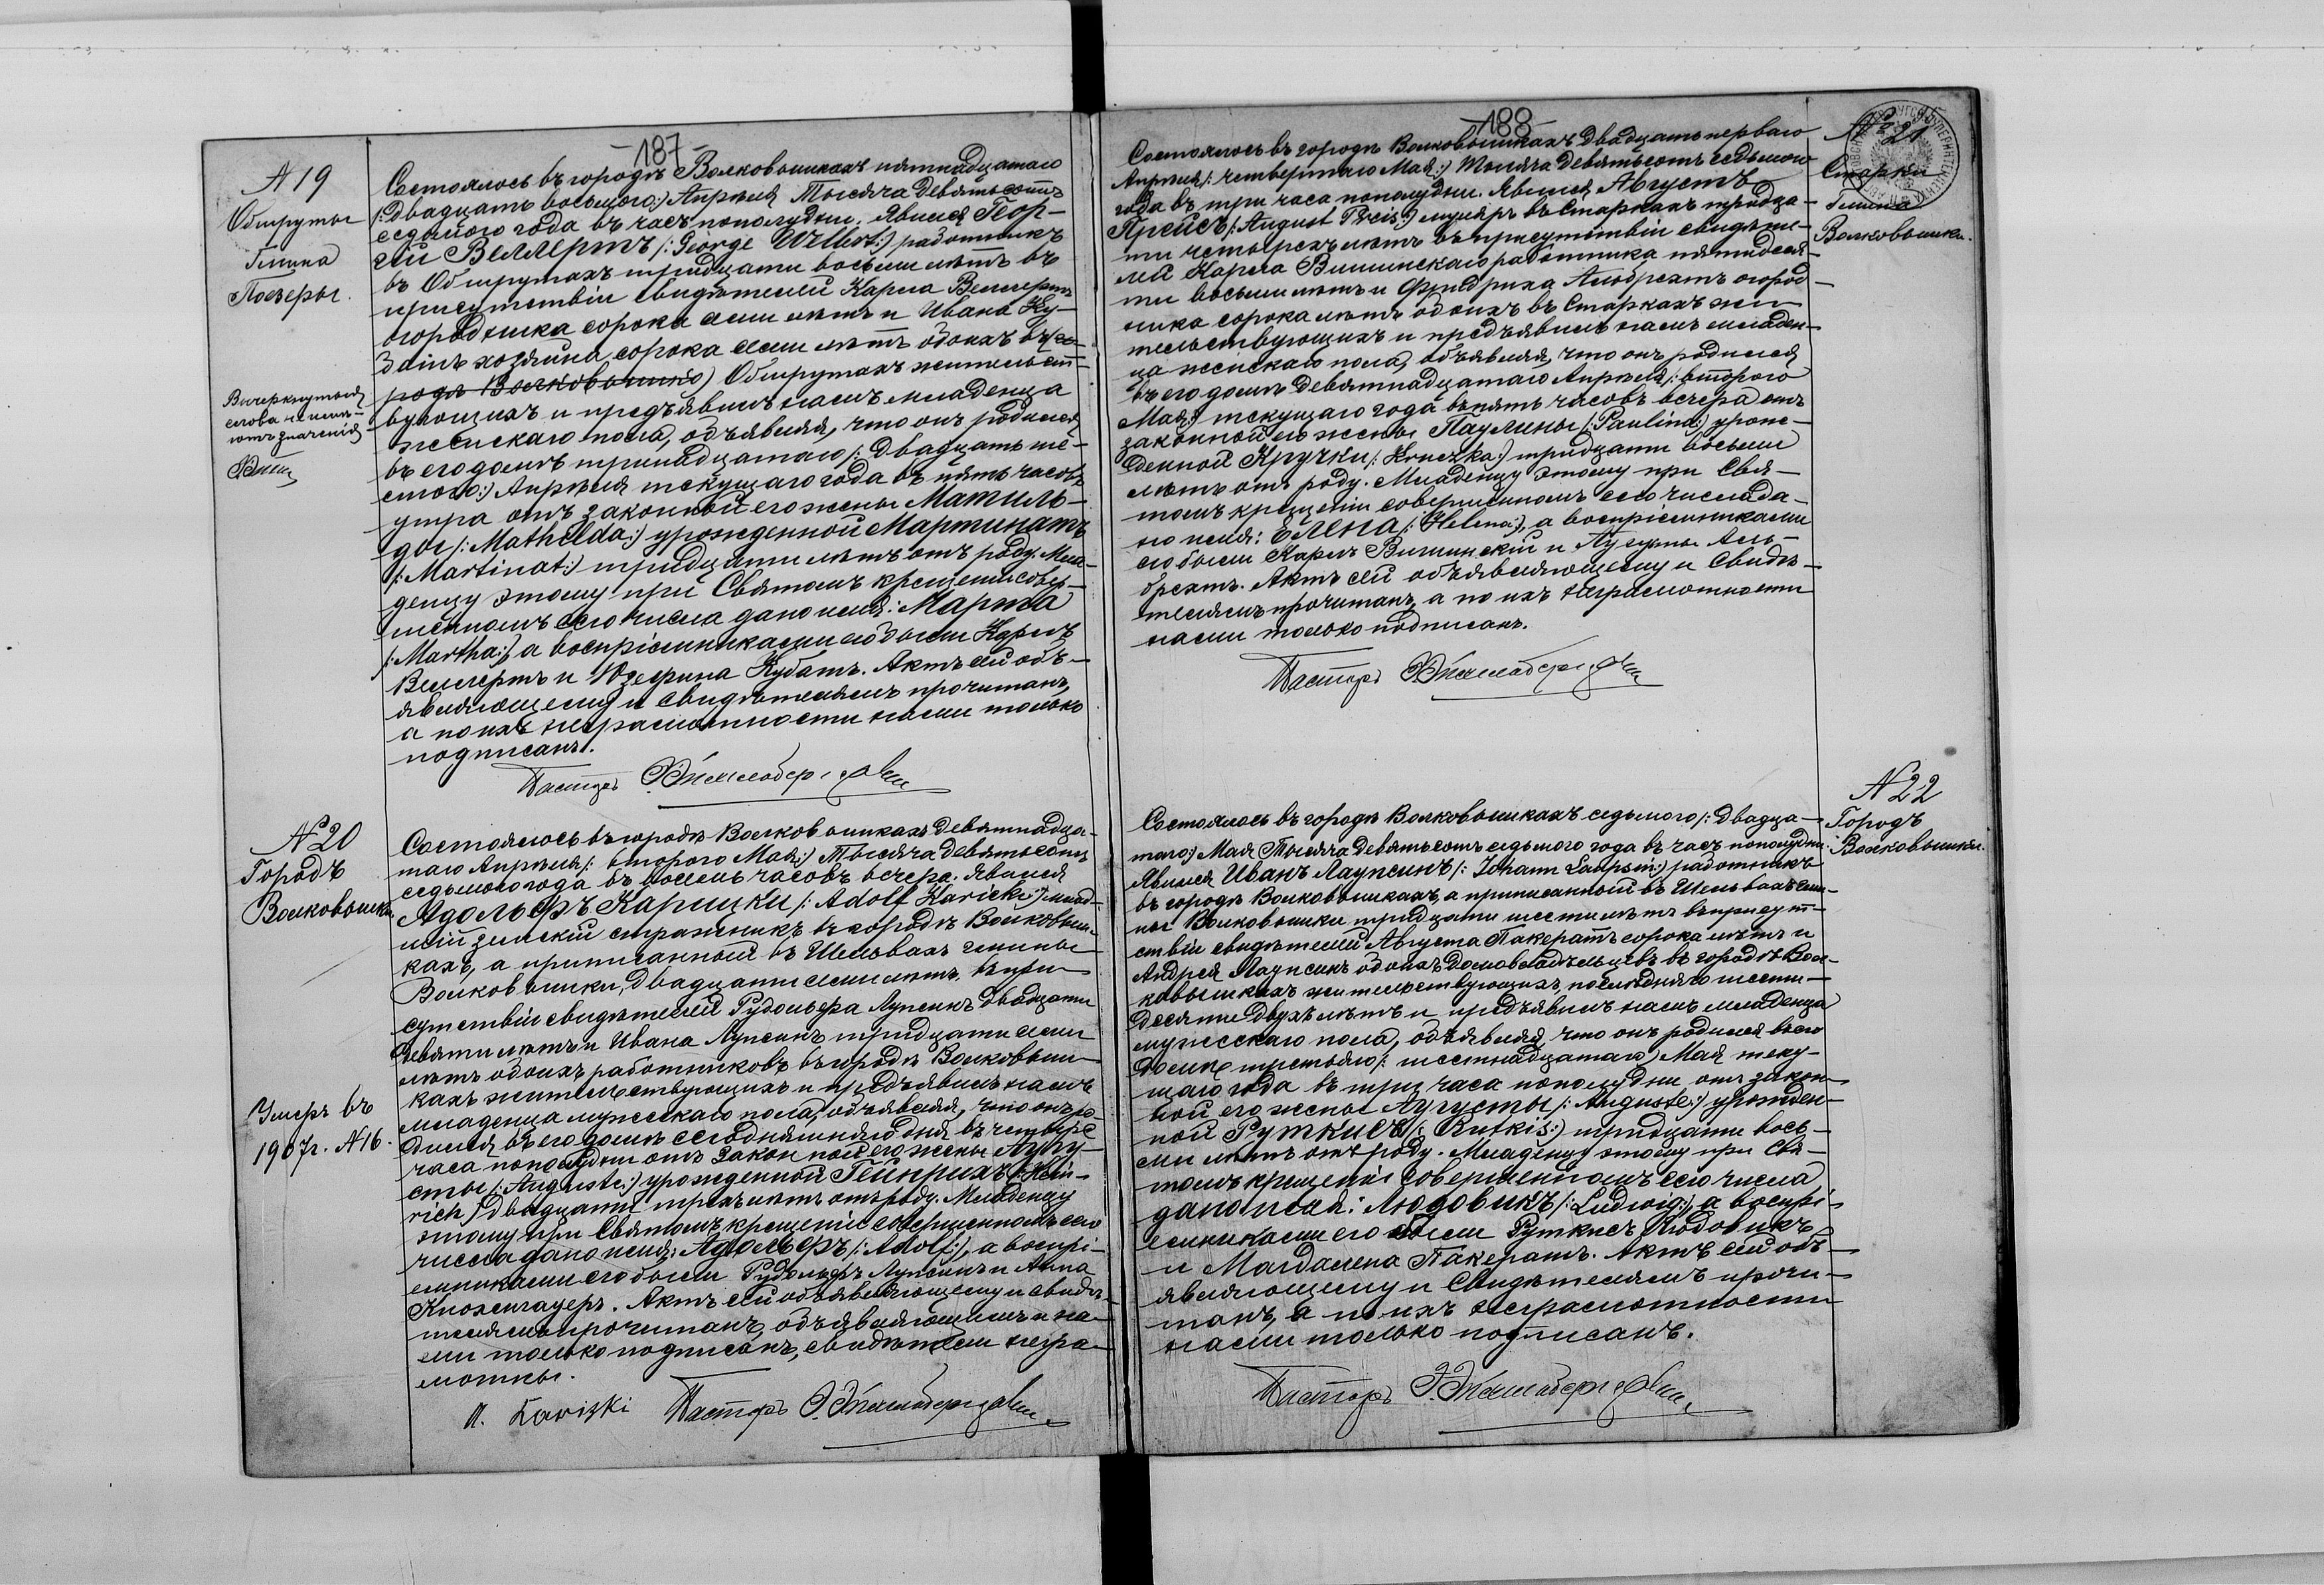 -187-
№ 19
Обшруты
Гмина
Поезеры.
Состоялось въ городѣ Волковышкахъ пятнадцатаго
/: двадцать восьмого:/ Апрѣля Тысяча девятьсотъ
седьмого года въ часъ пополудни. Явился Геор-
гій Веллертъ /: George Wellert:/ работникъ
въ Обшрутахъ тридцати восьми лѣтъ въ
присутствіи свидѣтелей Карла Веллертъ
огородника сорока семи лѣтъ и Ивана Ку-
хозяина, сорока семи лѣтъ обоихъ въ го-
родѣ Волковышкахъ Обшрутахъ жительст-
вующихъ и предъявилъ намъ младенца
женскаго пола, объявляя, что онъ родился
въ его домѣ тринадцатаго /: двадцать ше-
стого:/ Апрѣля текущаго года въ пять часовъ
утра отъ законной его жены Матиль-
ды /: Mathilda:/ урожденной Мартинатъ
/: Martinat:/ тридцати лѣтъ отъ роду. Мла-
денцу этому при Святомъ крещеніи совер-
шенномъ сего числа дано имя: Марта
/: Martha:/, а воспріемниками его были Карлъ
Веллертъ и Юзефина Кубатъ. Актъ сей объ-
являющему и свидѣтелямъ прочитанъ,
а по ихъ неграмотности нами только
подписанъ.
Пасторъ
Вычеркнутыя
слова не имѣ-
ютъ значенія
№ 20
Городъ
Волковышки
Состоялось въ городѣ Волковышкахъ девятнадца-
таго Апрѣля /: второго Мая:/ Тысяча девятьсотъ
седьмого года въ восемь часовъ вечера. Явился
Адольфъ Карицки /: Adolf Karicki:/ млад-
шій земскій стражникъ въ городѣ Волковыш-
кахъ, а приписанный въ Шельвахъ гмины
Волковышки, двадцати семи лѣтъ, въ при-
сутствіи свидѣтелей Рудольфа Лупсинъ двадцати
девяти лѣтъ и Ивана Лупсинъ тридцати семи
лѣтъ обоихъ работниковъ въ городѣ Волковыш-
кахъ жительствующихъ и предъявилъ намъ
младенца мужескаго пола, объявляя, что онъ ро-
дился въ его домѣ сегодняшняго дня въ четыре
часа пополудни отъ законной его жены Авгу-
сты /: Auguste:/ урожденной Гейнрихъ /: Hein-
rich:/ двадцати трехъ лѣтъ отъ роду. Младенцу
этому при Святомъ крещеніи совершенномъ сего
числа дано имя: Адольфъ /: Adolf:/, а воспрі-
емниками его были Рудольфъ Лупсинъ и Анна
Кноженгауеръ. Актъ сей объявляющему и свидѣ-
телямъ прочитанъ, объявляющимъ и на-
ми только подписанъ, свидѣтели негра-
мотны.
Karizki Пасторъ
Умеръ въ
1907 г. № 16.
-188-
№ 21
Старки
Гмина
Волковышки.
Состоялось въ городѣ Волковышкахъ двадцать перваго
Апрѣля /: четвертаго Мая:/ Тысяча девятьсотъ седьмого
года въ три часа пополудни. Явился Августъ
Прейсъ /: August Preis:/ муляръ въ Старкахъ тридца-
ти четырехъ лѣтъ въ присутствіи свидѣте-
лей Карла Вишинскаго работника пятидеся-
ти восьми лѣтъ и Фридриха Альбрехтъ огород-
ника сорока лѣтъ обоихъ въ Старкахъ жи-
тельствующихъ и предъявилъ намъ младен-
ца женскаго пола, объявляя, что онъ родился
въ его домѣ девятнадцатаго Апрѣля /: второго
Мая:/ текущаго года въ пять часовъ вечера отъ
законной его жены Паулины /: Paulina:/ урож-
денной Кручки /: Kruczka:/ тридцати восьми
лѣтъ отъ роду. Младенцу этому при Свя-
томъ крещеніи совершенномъ сего числа да-
но имя: Елена /: Helena:/, а воспріемниками
его были Карлъ Вишинскій и Августа Аль-
брехтъ. Актъ сей объявляющему и свидѣ-
телямъ прочитанъ, а по ихъ неграмотности
нами только подписанъ.
Пасторъ
№ 22
Городъ
Волковышки.
Состоялось въ городѣ Волковышкахъ седьмого /: двадца-
таго:/ Мая Тысяча девятьсотъ седьмого года въ часъ пополудни.
Явился Иванъ Лаупсинъ /: Johann Laupsin:/ работникъ
въ городѣ Волковышкахъ, а приписанный въ Шельвахъ гми-
ны Волковышки тридцати шести лѣтъ въ присут-
ствіи свидѣтелей Августа Пакератъ сорока лѣтъ и
Андрея Лаупсинъ обоихъ домовладѣльцевъ въ городѣ Вол-
ковышкахъ жительствующихъ, послѣдняго шести-
десяти двухъ лѣтъ и предъявилъ намъ младенца
мужескаго пола, объявляя, что онъ родился въ его
домѣ третьяго /: шестнадцатаго:/ Мая теку-
щаго года въ три часа пополудни отъ закон-
ной его жены Августы /: Auguste:/ урожден-
ной Руткисъ /: Rutkis:/ тридцати вось-
ми лѣтъ отъ роду. Младенцу этому при Свя-
томъ крещеніи совершенномъ сего числа
дано имя: Людовикъ /: Ludwig:/, а воспрі-
емниками его были Руткисъ Людовикъ
и Магдалена Пакератъ. Актъ сей объ-
являющему и свидѣтелямъ прочи-
танъ, а по ихъ неграмотности
нами только подписанъ.
Пасторъ